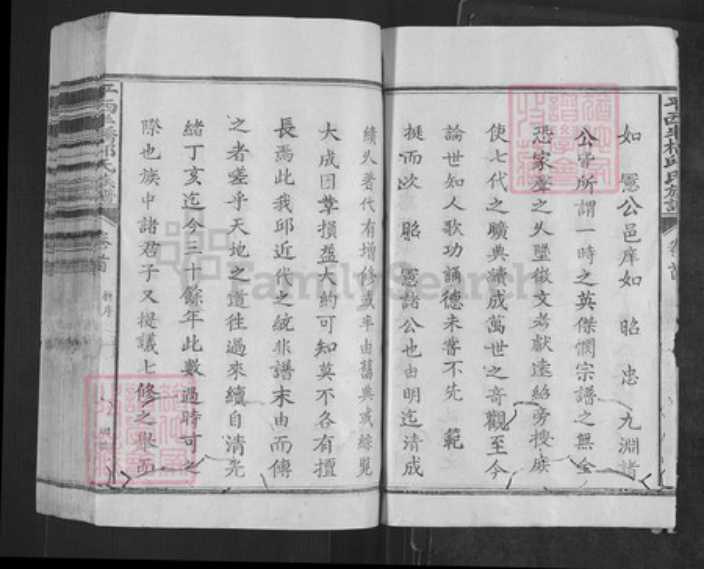 如 憲公邑庠如 昭 忠 九淵諸
公皆所謂一時之英傑憫宗譜之無全
恐家聲之久墜徵文考獻遠紹旁搜底
使七代之曠典續成萬世之奇觀至今
論世知人歌功誦德未嘗不先 範
挺而次 昭 憲諸公也由明迄清成
績久著代有增修或率由舊典或綜覽
大成因革損益大約可知莫不各有擅
長焉此我邱近代之統非譜末由而傳
之者嗟乎天地之道往過來續自清光
緒丁亥迄今三十餘年此數過時可之
際也族中諸君子又提議七修之舉而
平西 橋邱氏族譜
卷首
新序
FamilySearch